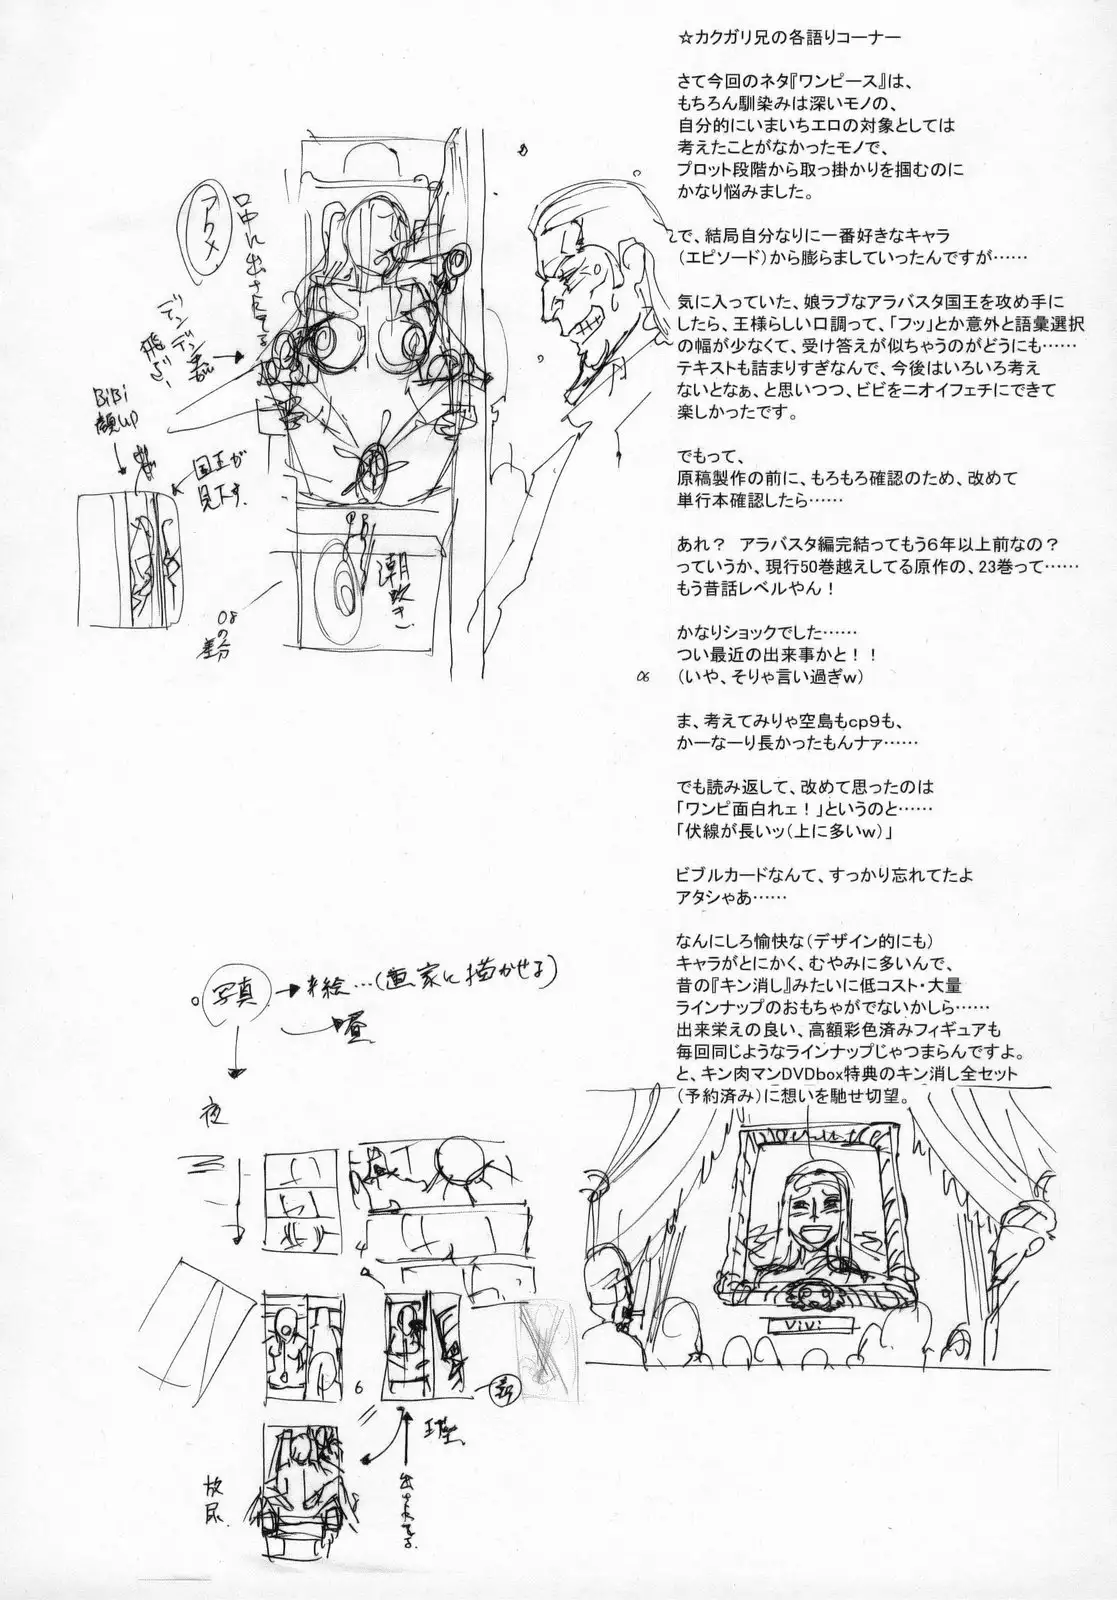 ☆カクガリ兄の各語りコーナー
さて今回のネタ『ワンピース』は、
もちろん馴染みは深いモノの、
自分的にいまいちエロの対象としては
考えたことがなかったモノで、
プロット段階から取っ掛かりを掴むのに
かなり悩みました。
で、結局自分なりに一番好きなキャラ
（エピソード）から膨らましていったんですが……
気に入っていた、娘ラブなアラバスタ国王を攻め手に
したら、王様らしい口調って、「フッ」とか意外と語彙選択
の幅が少なくて、受け答えが似ちゃうのがどうにも……
テキストも詰まりすぎなんで、今後はいろいろ考え
ないとなぁ、と思いつつ、ビビをニオイフェチにできて
楽しかったです。
でもって、
原稿製作の前に、もろもろ確認のため、改めて
単行本確認したら……
あれ？　アラバスタ編完結ってもう６年以上前なの？
っていうか、現行50巻越えしてる原作の、23巻って……
もう昔話レベルやん！
かなりショックでした……
つい最近の出来事かと！！
（いや、そりゃ言い過ぎｗ）
ま、考えてみりゃ空島もcp９も、
かーなーり長かったもんナァ……
でも読み返して、改めて思ったのは
「ワンピ面白れェ！」というのと……
「伏線が長いッ（上に多いｗ）」
ビブルカードなんて、すっかり忘れてたよ
アタシゃあ……
なんにしろ愉快な（デザイン的にも）
キャラがとにかく、むやみに多いんで、
昔の『キン消し』みたいに低コスト・大量
ラインナップのおもちゃがでないかしら……
出来栄えの良い、高額彩色済みフィギュアも
毎回同じようなラインナップじゃつまらんですよ。
と、キン肉マンDVDbox特典のキン消し全セット
（予約済み）に想いを馳せ切望。
アクメ
口中に出されてる
BiBi
顔up
国王が
見下す.
潮吹き
08
の
差分
06
写真
絵…(画家に描かせる)
昼
夜
4
6
放尿.
出されてる.
ViVi